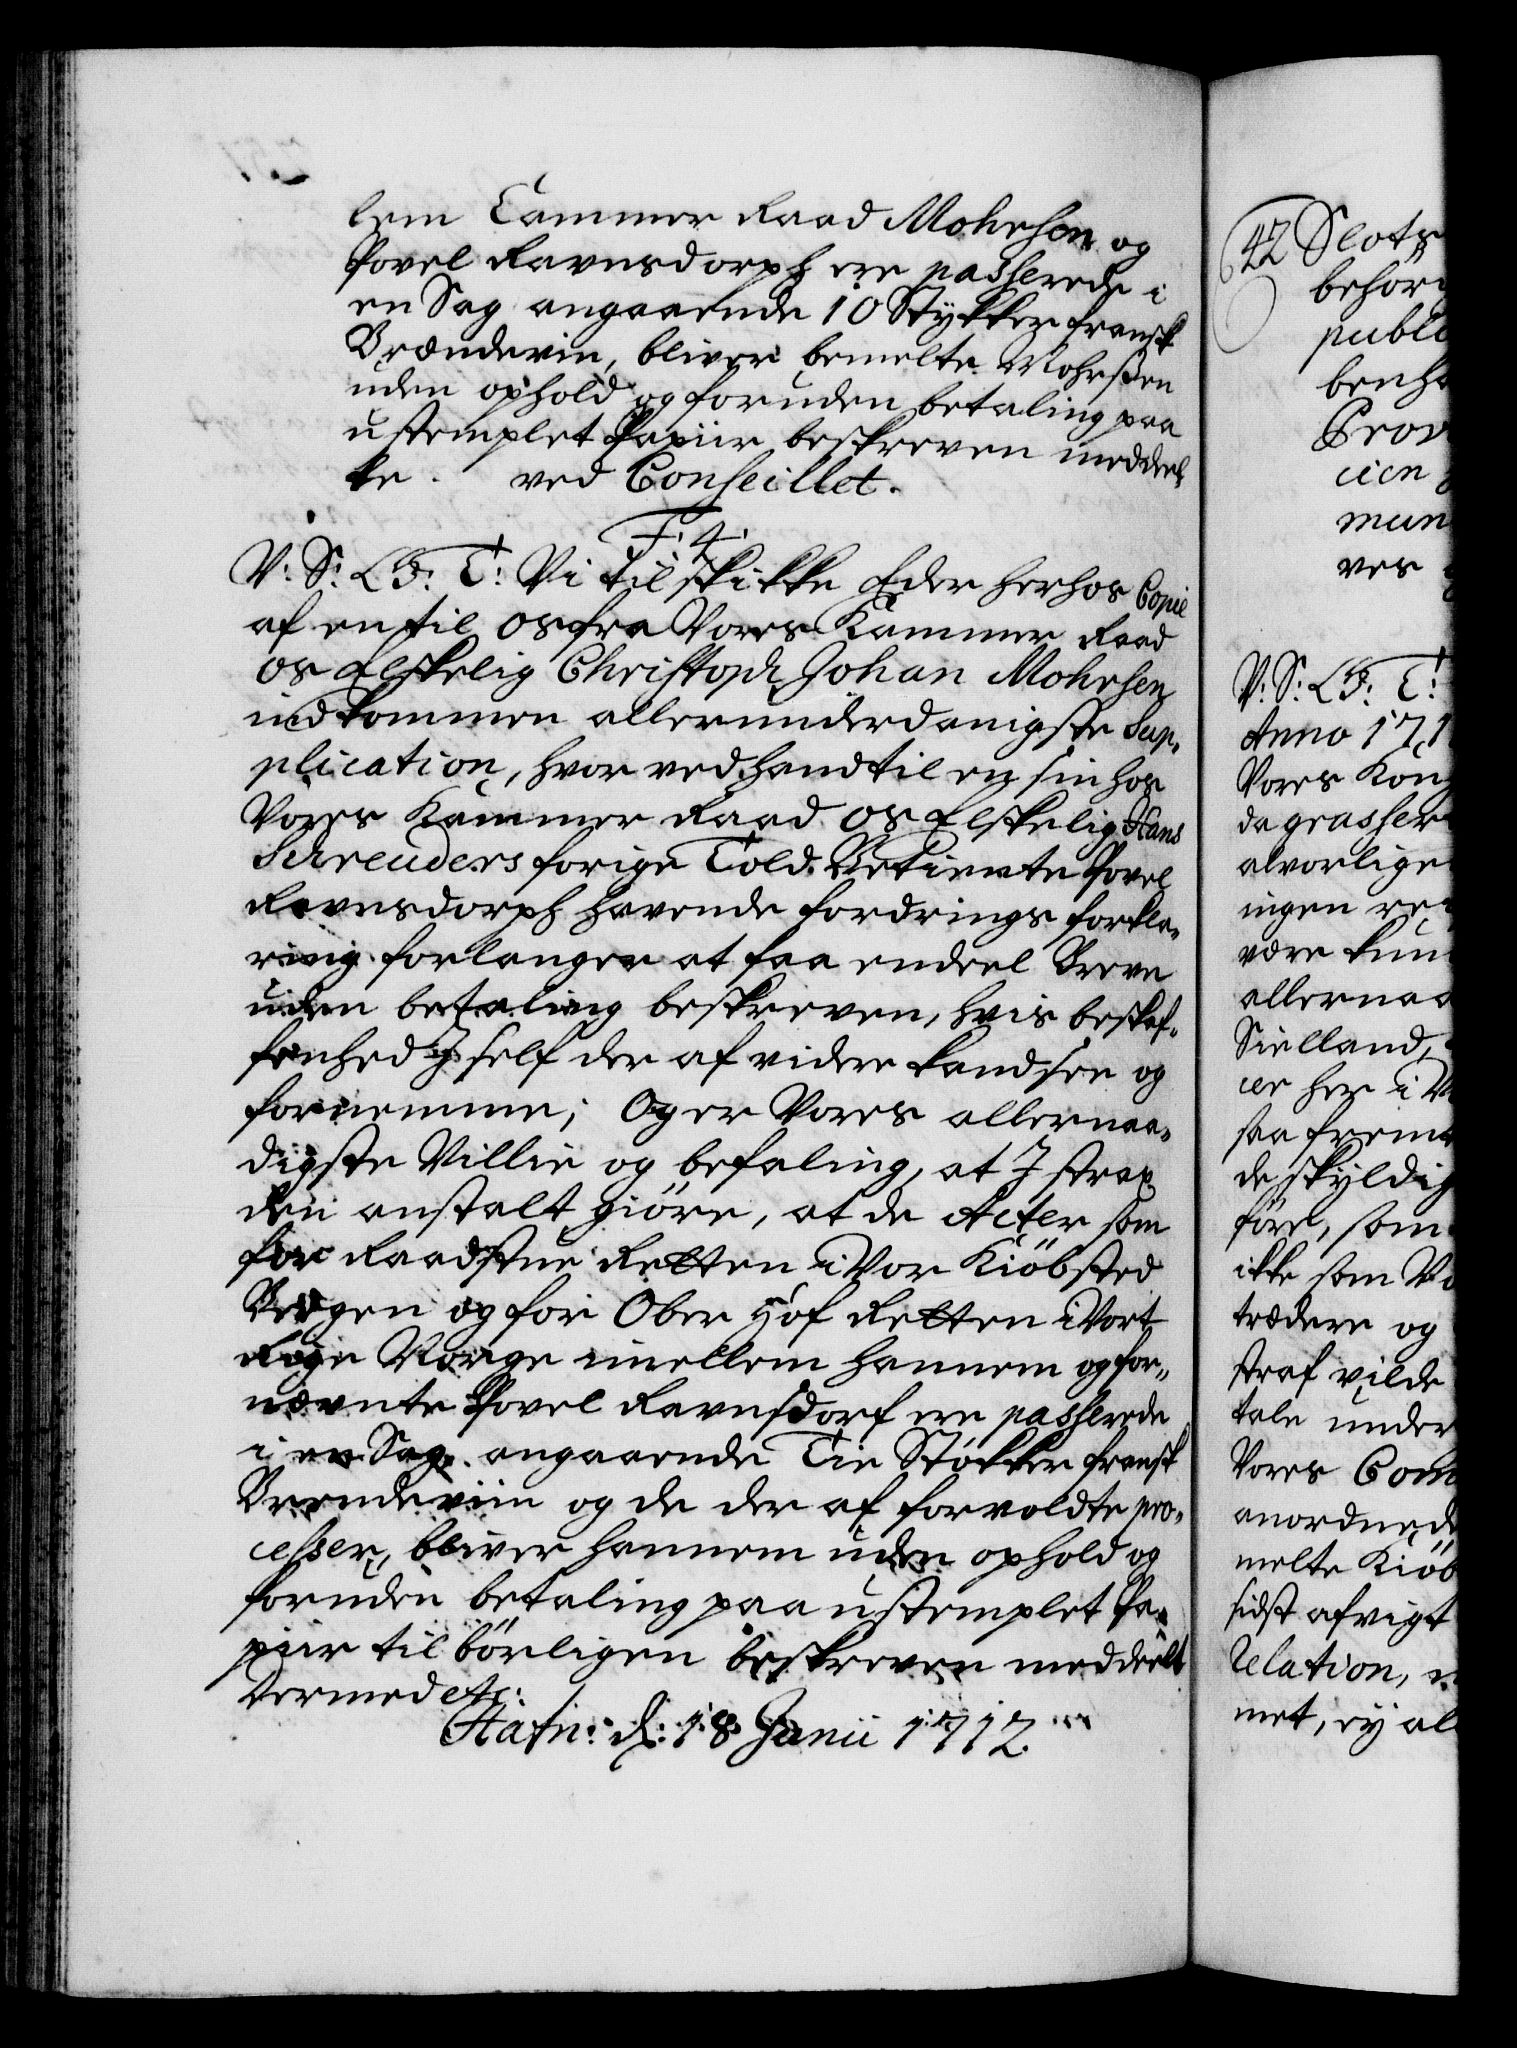 lem Cammer Raad Mohrsen og
Povel Ravnsdorph ere passerede i
en Sag angaaende 10 Stykker fransk
Brændeviin, bliver bemelte Mohrsen
uden ophold og foruden betaling paa
ustemplet Papiir beskreven meddeel-
te. ved Conseillet.
F. 4.
V: S: G: T: Vi tilskikke Eder herhos Copie
af en til os fra Vores Kammer Raad
os Elskelig Christoph Johan Mohrsen
indkommen allerunderdanigste Sup-
plication, hvor ved hand til en sin hos
Vores Kammer Raad os Elskelig Hans
Schreuders forige Told-Betiente Povel
Ravnsdorph havende fordrings forkla-
ring forlanger at faa endeel Breve
uden betaling beskreven, hvis beskaf-
fenhed I self der af videre kand see og
fornemme; Og er Vores allernaa-
digste Villie og befaling, at I strax
den anstalt giöre, at de Acter som
for Raadstue Retten i Vor Kiöbsted
Bergen og for Ober Hof Retten i Vort
Rige Norge imellem hannem og for-
nævnte Povel Ravnsdorf ere passerede
i en Sag angaaende Tie Støkker fransk
Brendeviin og de der af forvoldte pro-
cesser, bliver hannem uden ophold og
foruden betaling paa ustemplet Pa-
piir tilbörligen beskreven meddeelt
Dermed etc:
Hafn: d: 18 Junii 1712.
42 Slots
behör
public
benha
Prov
cien
mun
ves
V: S: G: T:
Anno 171
Vores Kong
da grasser
alvorlige
ingen re
være kun
allernaa
Sielland,
cer her i V
saa frem
de skyldig
före, som
ikke som Vo
trædere og
straf vilde
tale under
Vores Com
anordnede
melte Kiöb
sidst afvigt
relation,
met, ey al